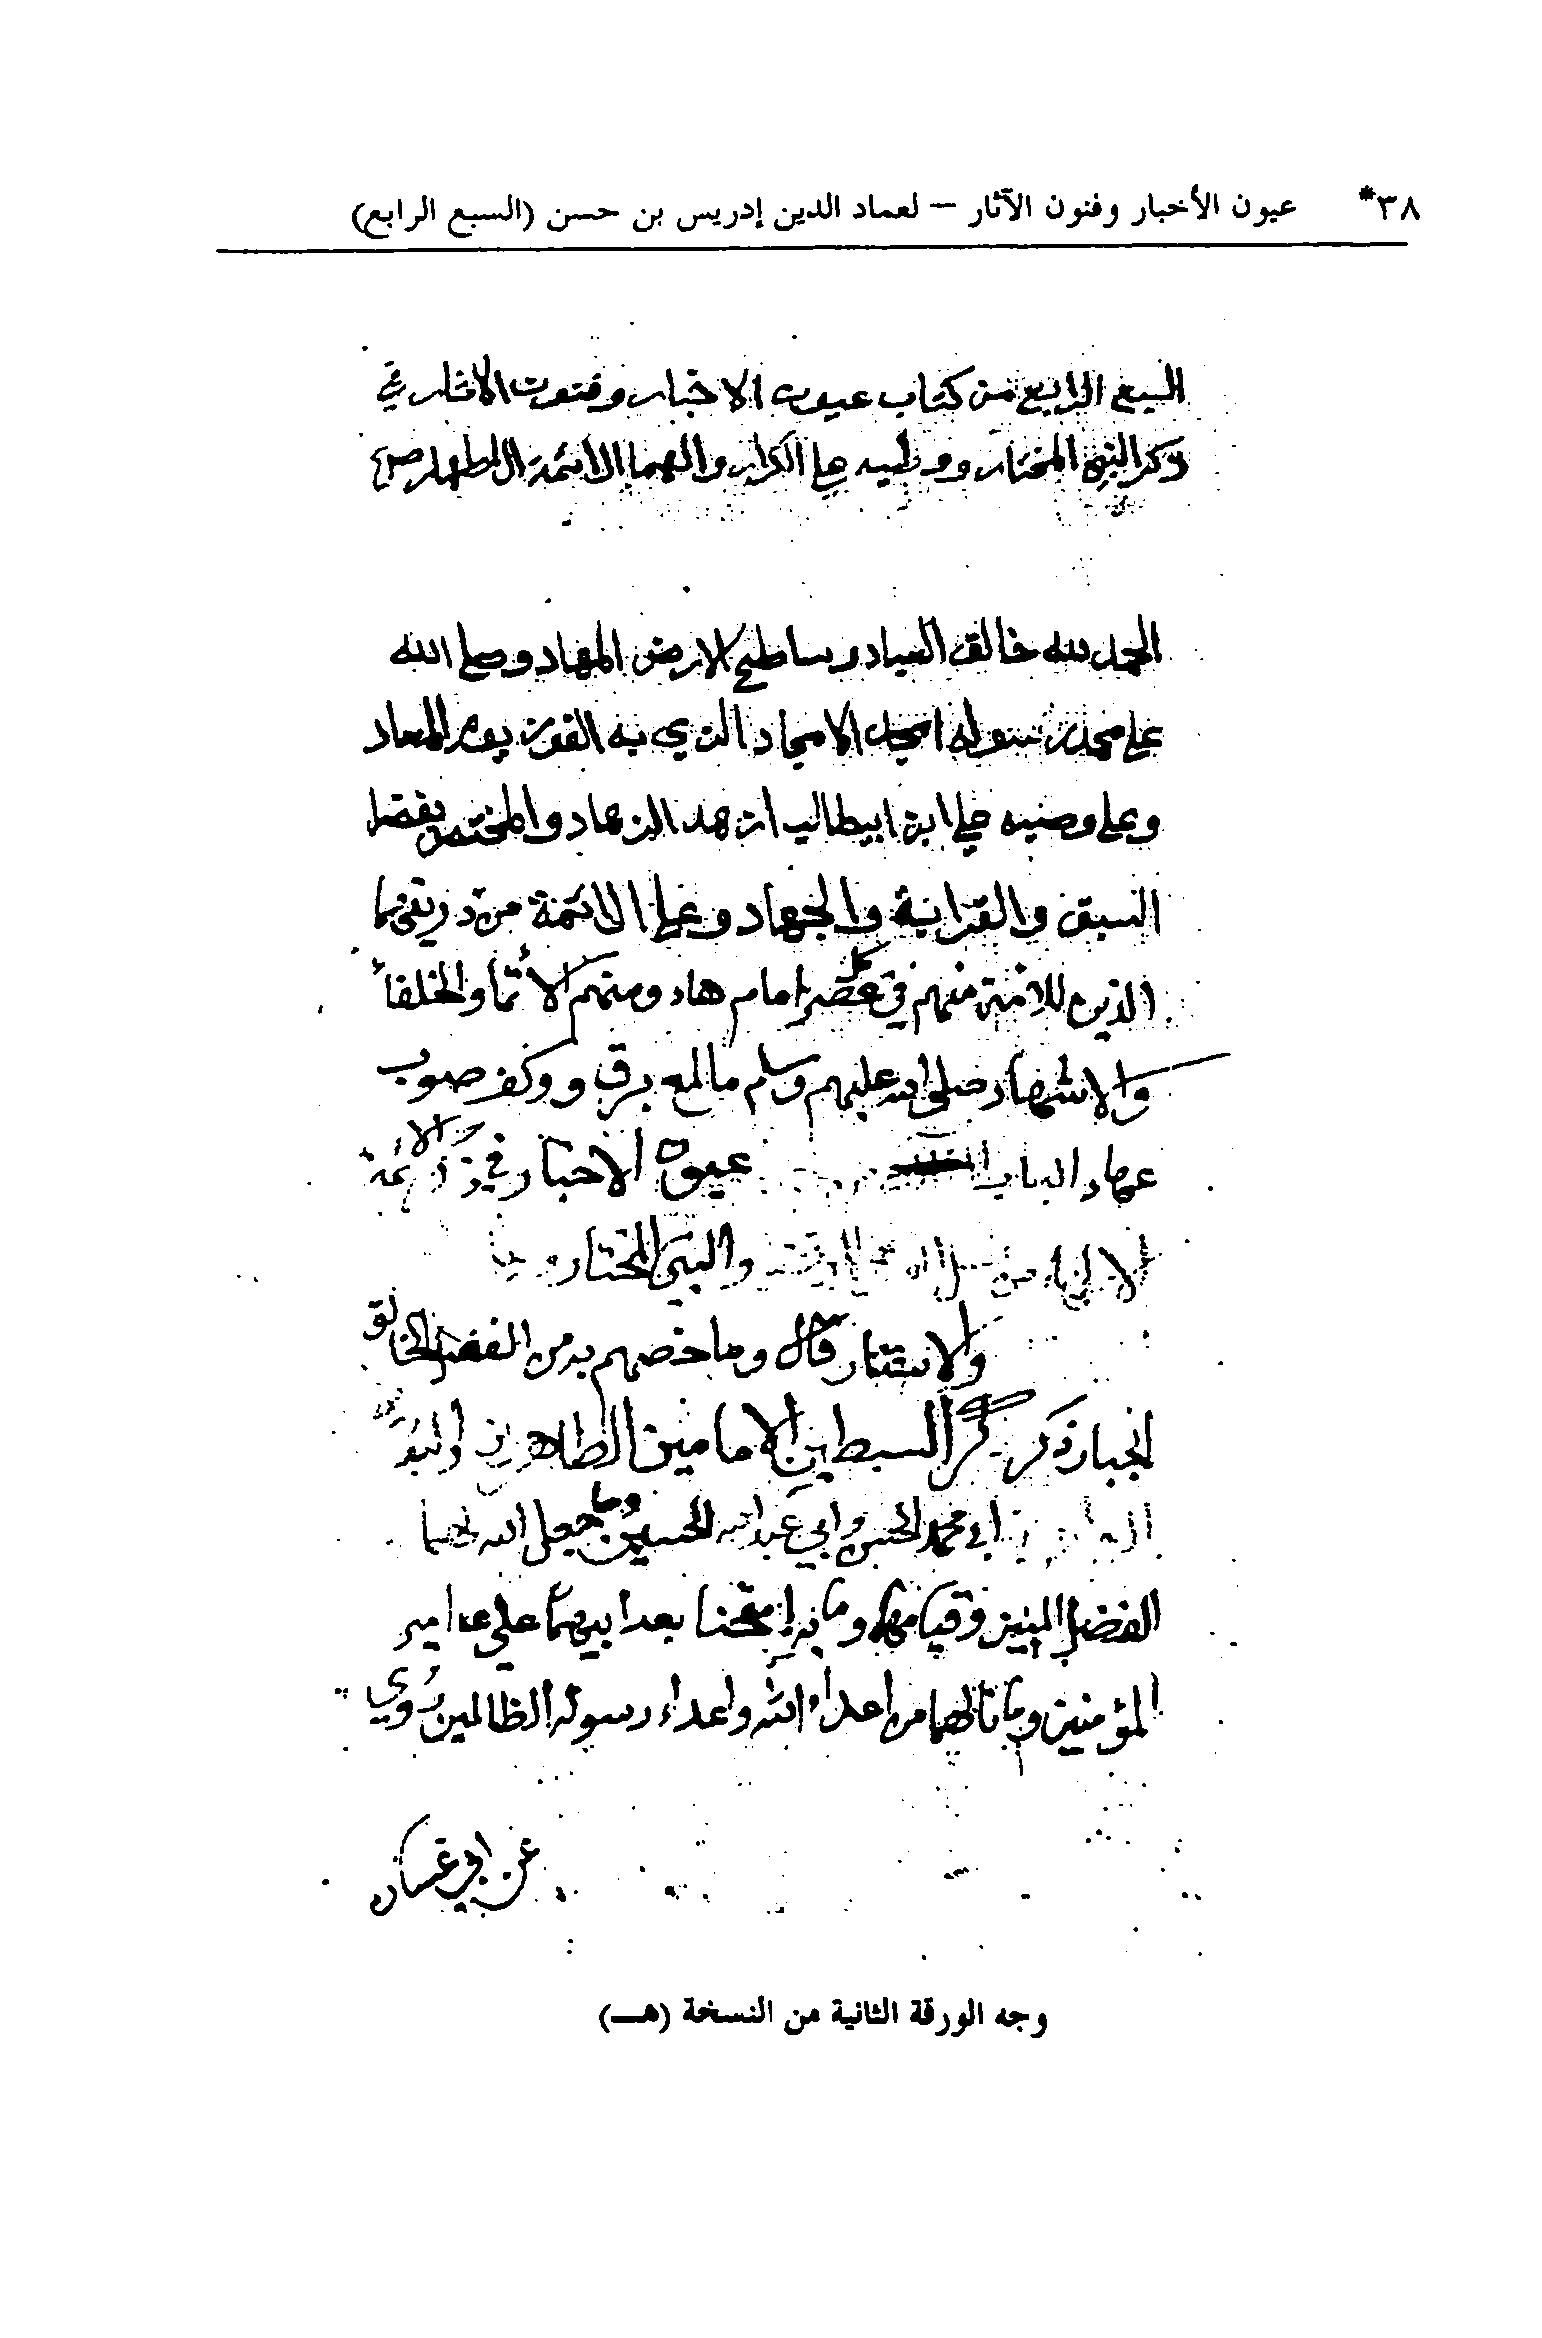 ٣٨* عيون الأخبار وفنون الآثار – لعماد الدين إدريس بن حسن (السبع الرابع)
السبع الرابع من كتاب عيون الاخبار وفنون الاثار في
ذكر النبي المختار ووصيه علي الكرار والهما الائمة الاطهار
الحمد لله خالق العباد وساطح الارض المهاد وصلى الله
على محمد رسوله امجد الامجاد الذي به الفوز يوم المعاد
وعلى وصيه علي ابن ابيطالب ازهد الزهاد والمختص بفضل
السبق والقرابة والجهاد وعلى الائمة من ذريتهما
الذين للامة منهم في كل عصر امام هاد ومنهم الأئمأ والخلفأ
والاشهاد صلى الله عليهم وسلم ما لمع برق ووكف صوب
عهاد عيون الاخبار في
والنبي المختار
والاستتار قال وما خصهم به من الفضل الخالق
الجبار ذكر السبطين الامامين الطاهرين
ابي محمد الحسن وابي عبد الله الحسين وما جعل الله لهما
الفضل المبين وقيامهما وما به امتحنا بعد ابيهما علي عا امير
المؤمنين وما نالهما من اعداء الله واعداء رسوله الظالمين روي
عن ابي غسان
وجه الورقة الثانية من النسخة (هـ)